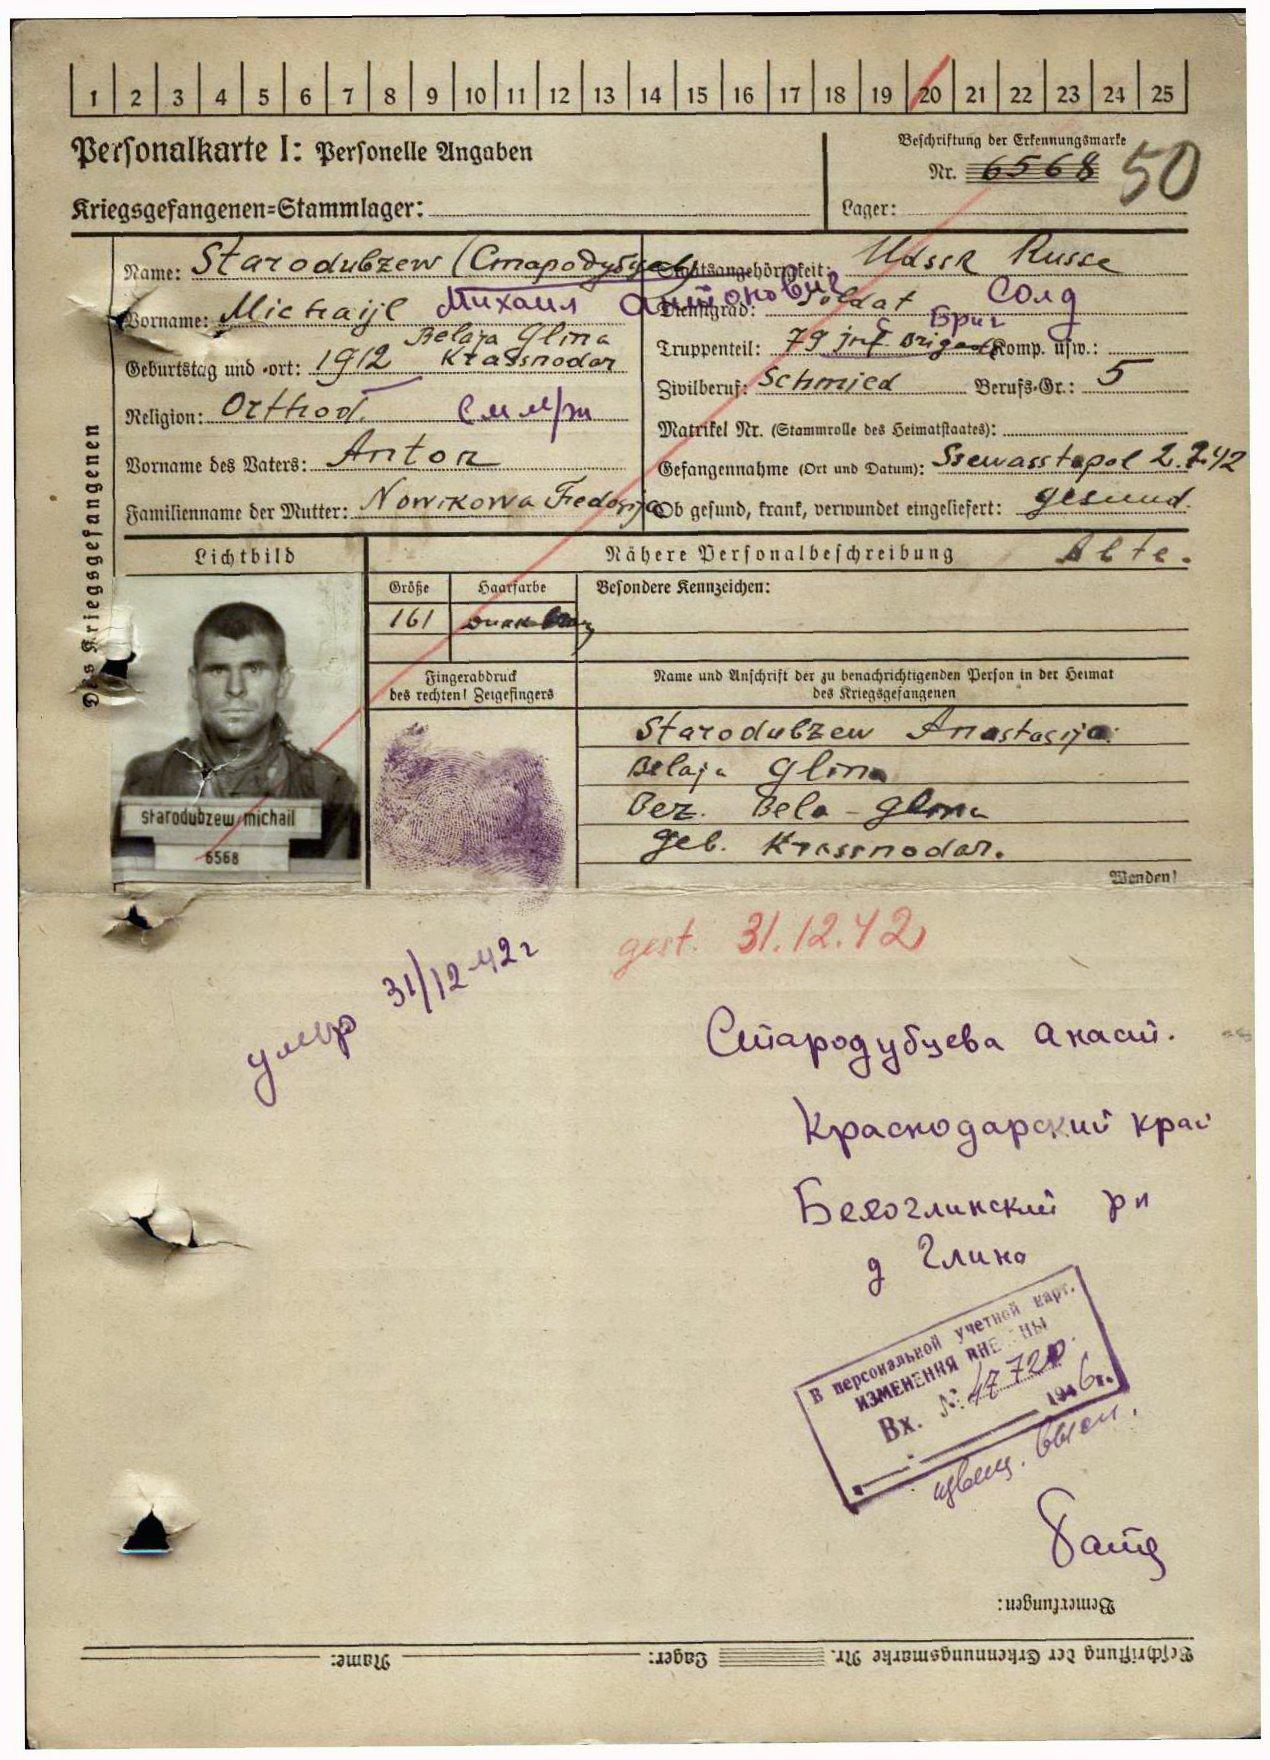 1 2 3 4 5 6 7 8 9 10 11 12 13 14 15 16 17 18 19 20 21 22 23 24 25
Personalkarte I: Personelle Angaben
Beschriftung der Erkennungsmarke
Nr. 6568 50
Kriegsgefangenen=Stammlager:
Lager:
Des Kriegsgefangenen
Name: Starodubzew (Стародубцев)
Vorname: Michaijl Михаил Антонович
Belaja Glina
Geburtstag und -ort: 1912 Krassnodar
Religion: Orthod.
Vorname des Vaters: Anton
Familienname der Mutter: Nowikowa Fedorija
Staatsangehörigkeit: Udssr Russe
Dienstgrad: Soldat Солд
Бриг
Truppenteil: 79 inf Brigade Komp. usw.:
Zivilberuf: Schmied Berufs-Gr.: 5
Matrikel Nr. (Stammrolle des Heimatstaates):
Gefangennahme (Ort und Datum): Ssewasstopol 2.7.42
Ob gesund, krank, verwundet eingeliefert: gesund.
Lichtbild
Nähere Personalbeschreibung
Größe Haarfarbe Besondere Kennzeichen:
161
Fingerabdruck
des rechten! Zeigefingers
Name und Anschrift der zu benachrichtigenden Person in der Heimat
des Kriegsgefangenen
Starodubzew Anastasija
Belaja Glina
Bez. Bela-Glina
Geb. Krassnodar.
starodubzew michail
6568
Wenden!
gest. 31.12.42
умер 31/12-42г
Стародубцева Анаст.
Краснодарский край
Белоглинский рн
д Глина
В персональной учетной карт.
ИЗМЕНЕНИЯ ВНЕ НЫ
Вх. № 4772
1946г.
извещ. высл.
Bemerkungen:
Beschriftung der Erkennungsmarke Nr. Lager: Name: